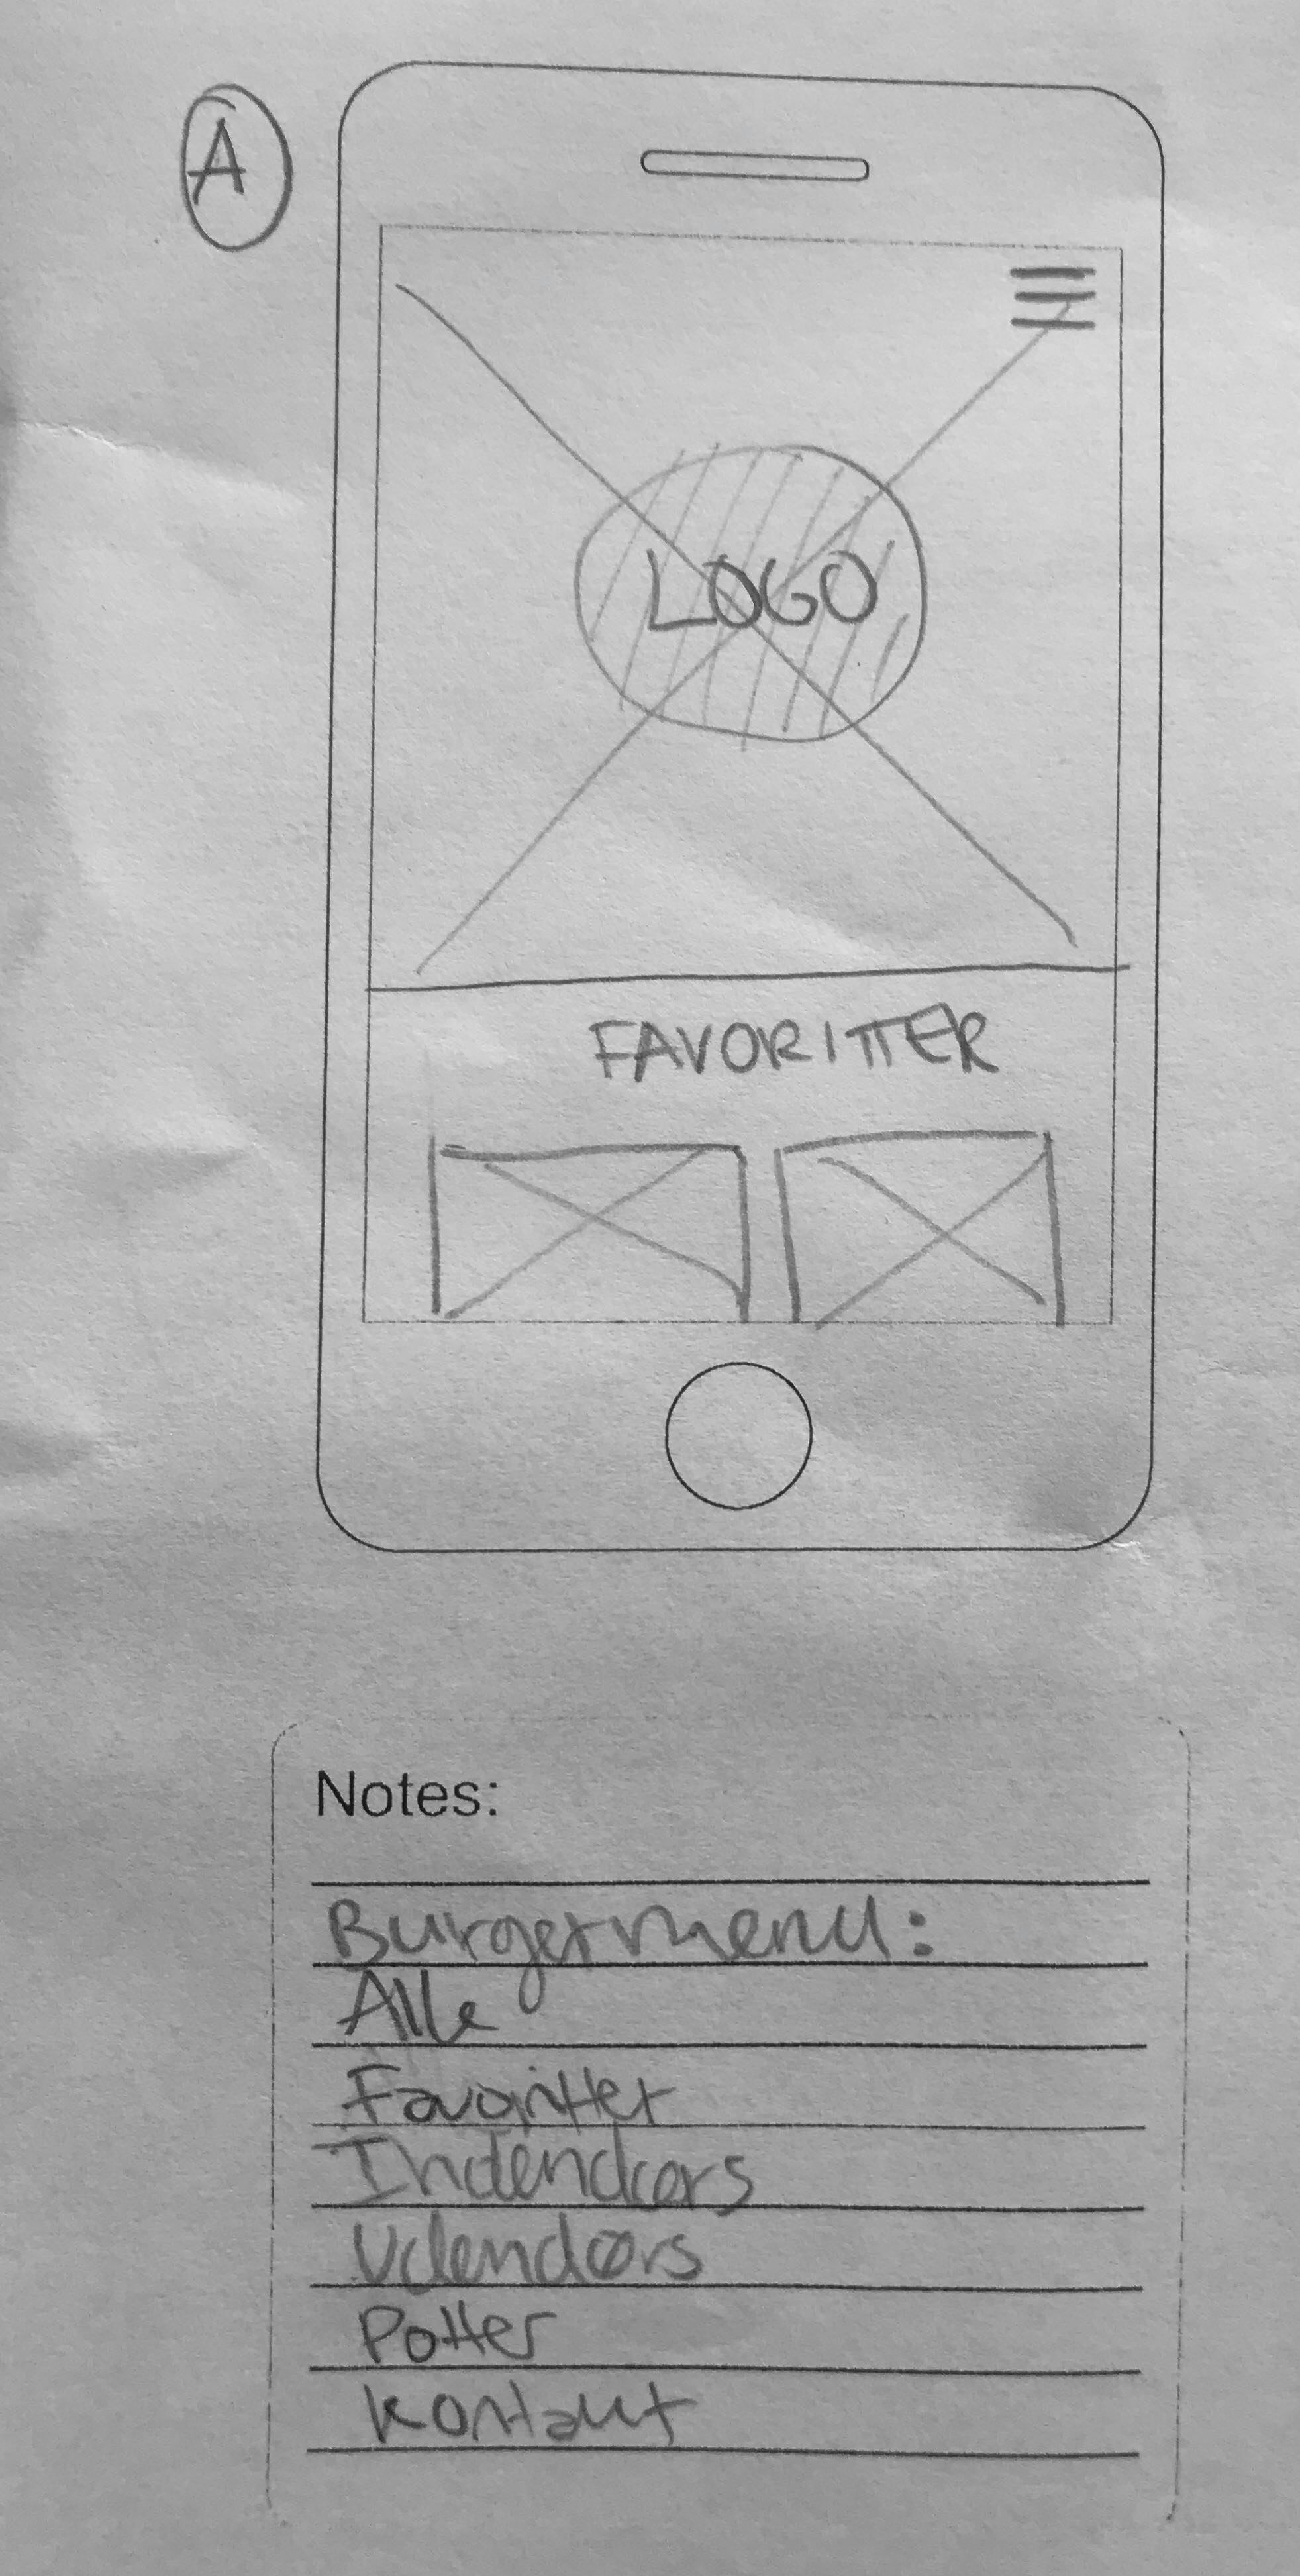 A
LOGO
FAVORITTER
Notes:
Burgermenu:
Alle
Favoritter
Indendørs
Udendørs
Potter
Kontakt